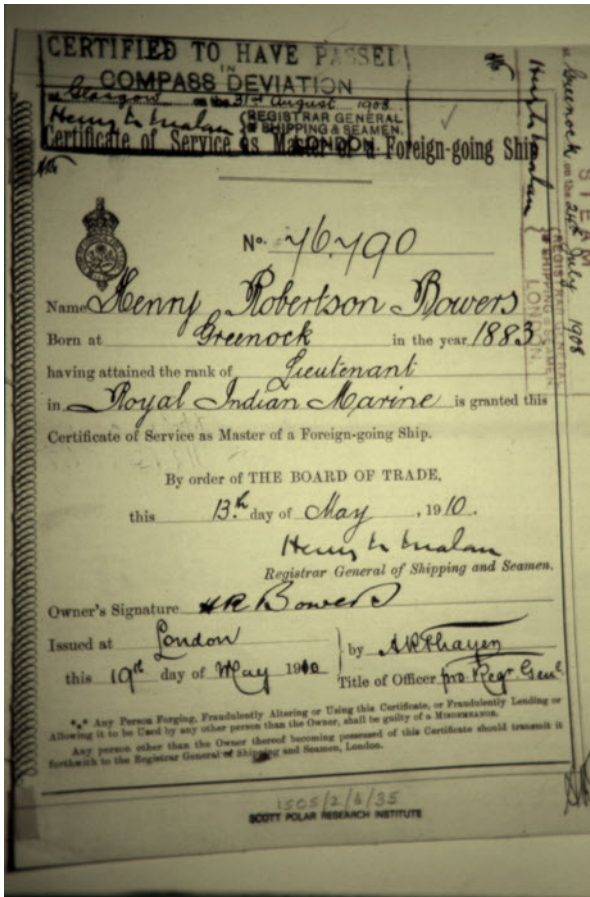 CERTIFIED TO HAVE PASSED
IN
COMPASS DEVIATION
at Glasgow on the 31st August 1908
REGISTRAR GENERAL
OF SHIPPING & SEAMEN.
LONDON
Certificate of Service as Master of a Foreign-going Ship
No. 76.790
Name Henry Robertson Bowers
Born at Greenock in the year 1883
having attained the rank of Lieutenant
in Royal Indian Marine is granted this
Certificate of Service as Master of a Foreign-going Ship.
By order of THE BOARD OF TRADE,
this 13th day of May , 1910.
Henry N Malan
Registrar General of Shipping and Seamen.
Owner's Signature HR Bowers
Issued at London
this 19th day of May 1910
by
Title of Officer pro Regr Genl
*** Any Person Forging, Fraudulently Altering or Using this Certificate, or Fraudulently Lending or
Allowing it to be Used by any other person than the Owner, shall be guilty of a MISDEMEANOR.
Any person other than the Owner thereof becoming possessed of this Certificate should transmit it
forthwith to the Registrar General of Shipping and Seamen, London.
1505/2/6/35
SCOTT POLAR RESEARCH INSTITUTE
STEAM
at Greenock on the 24th July 1908
REGISTRAR GENERAL
OF SHIPPING & SEAMEN.
LONDON